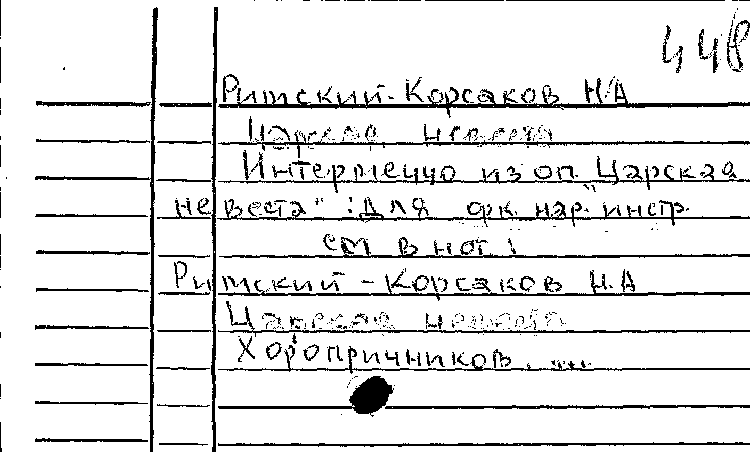 448
Римский-Корсаков Н.А
Царская невеста
Интермеццо из оп. "Царская
невеста" : Для орк. нар. инстр.
см в нот !
Римский-Корсаков Н.А
Царская невеста
Хоропричников. ....